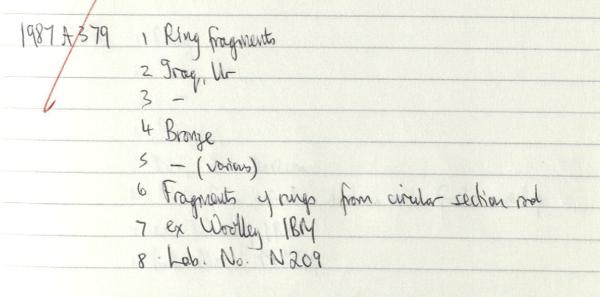 1987 A 379 1 Ring fragments
2 Iraq, Ur
3 -
4 Bronze
5 - (various)
6 Fragments of rings from circular section rod
7 ex Woolley IBM
8 Lab. No. N209